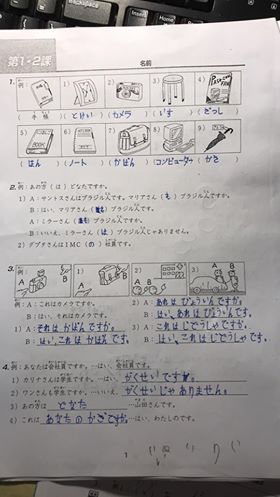 第1-2課
名前
1. 例： 1) 2) 3) 4)
( 手帳 ) ( とけい ) ( カメラ ) ( いす ) ( ざっし )
5) 6) 7) 8) 9)
( ほん ) ( ノート ) ( かばん ) ( コンピューター ) ( かさ )
2. 例：あの方（ は ）どなたですか。
1) A：サントスさんはブラジル人です。マリアさん（ も ）ブラジル人ですか。
B：はい、マリアさん（ も ）ブラジル人です。
A：ミラーさん（ も ）ブラジル人ですか。
B：いいえ、ミラーさん（ は ）ブラジル人じゃありません。
2) グプタさんはIMC（ の ）社員です。
3. 例： 1) 2) 3)
例：A：これはカメラですか。
B：はい、それはカメラです。
1) A：それは かばんですか。
B：はい、これは かばんです。
2) A：あれは びょういんですか。
B：はい、あれは びょういんです。
3) A：これは じどうしゃですか。
B：はい、これは じどうしゃです。
4. 例：あなたは会社員ですか。 …はい、会社員です。
1) カリナさんは学生ですか。 …はい、がくせいです。
2) ワンさんも学生ですか。 …いいえ、がくせいじゃありません。
3) あの方は どなた …山田さんです。
4) これは あなたの かぎですか。 …はい、わたしのです。
1